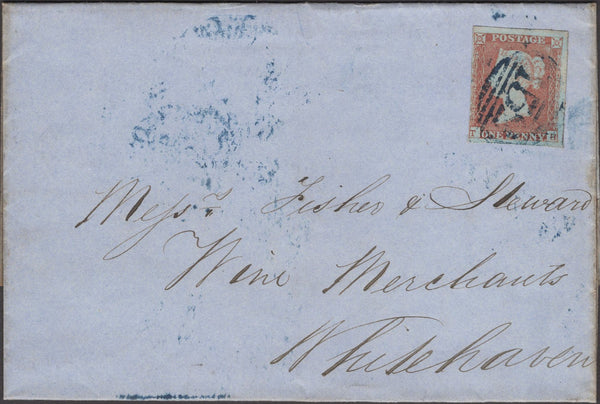 POSTAGE
ONE PENNY
Messrs. Fisher & Steward
Wine Merchants
Whitehaven